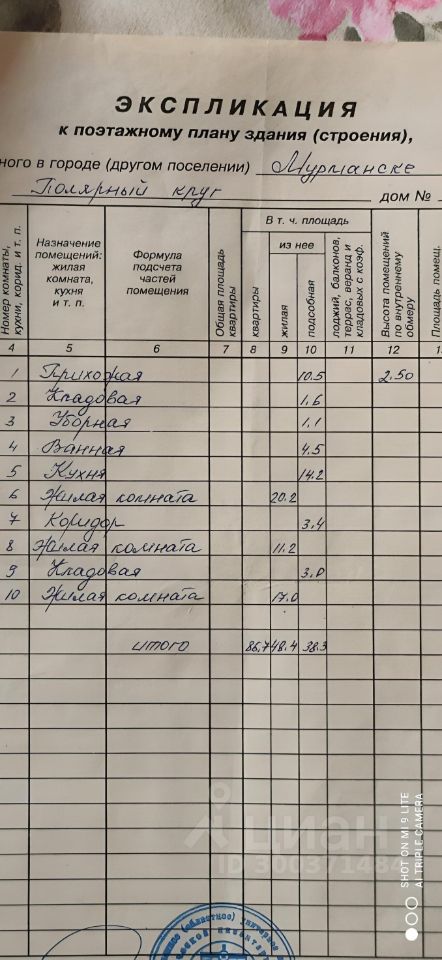 ЭКСПЛИКАЦИЯ
к поэтажному плану здания (строения),
ного в городе (другом поселении) Мурманске
Полярный круг дом №
Номер комнаты, кухни, корид. и т. п.
Назначение помещений: жилая комната, кухня и т. п.
Формула подсчета частей помещения
Общая площадь квартиры
В т. ч. площадь
квартиры
из нее
жилая
подсобная
лоджий, балконов, террас, веранд и кладовых с коэф.
Высота помещений по внутреннему обмеру
Площадь помещ.
4 5 6 7 8 9 10 11 12 1
1 Прихожая 10.5 2.50
2 Кладовая 1.6
3 Уборная 1.1
4 Ванная 4.5
5 Кухня 14.2
6 Жилая комната 20.2
7 Коридор 3.4
8 Жилая комната 11.2
9 Кладовая 3.0
10 Жилая комната 17.0
итого 86.7 48.4 38.3
циан
SHOT ON MI 9 LITE
AI TRIPLE CAMERA